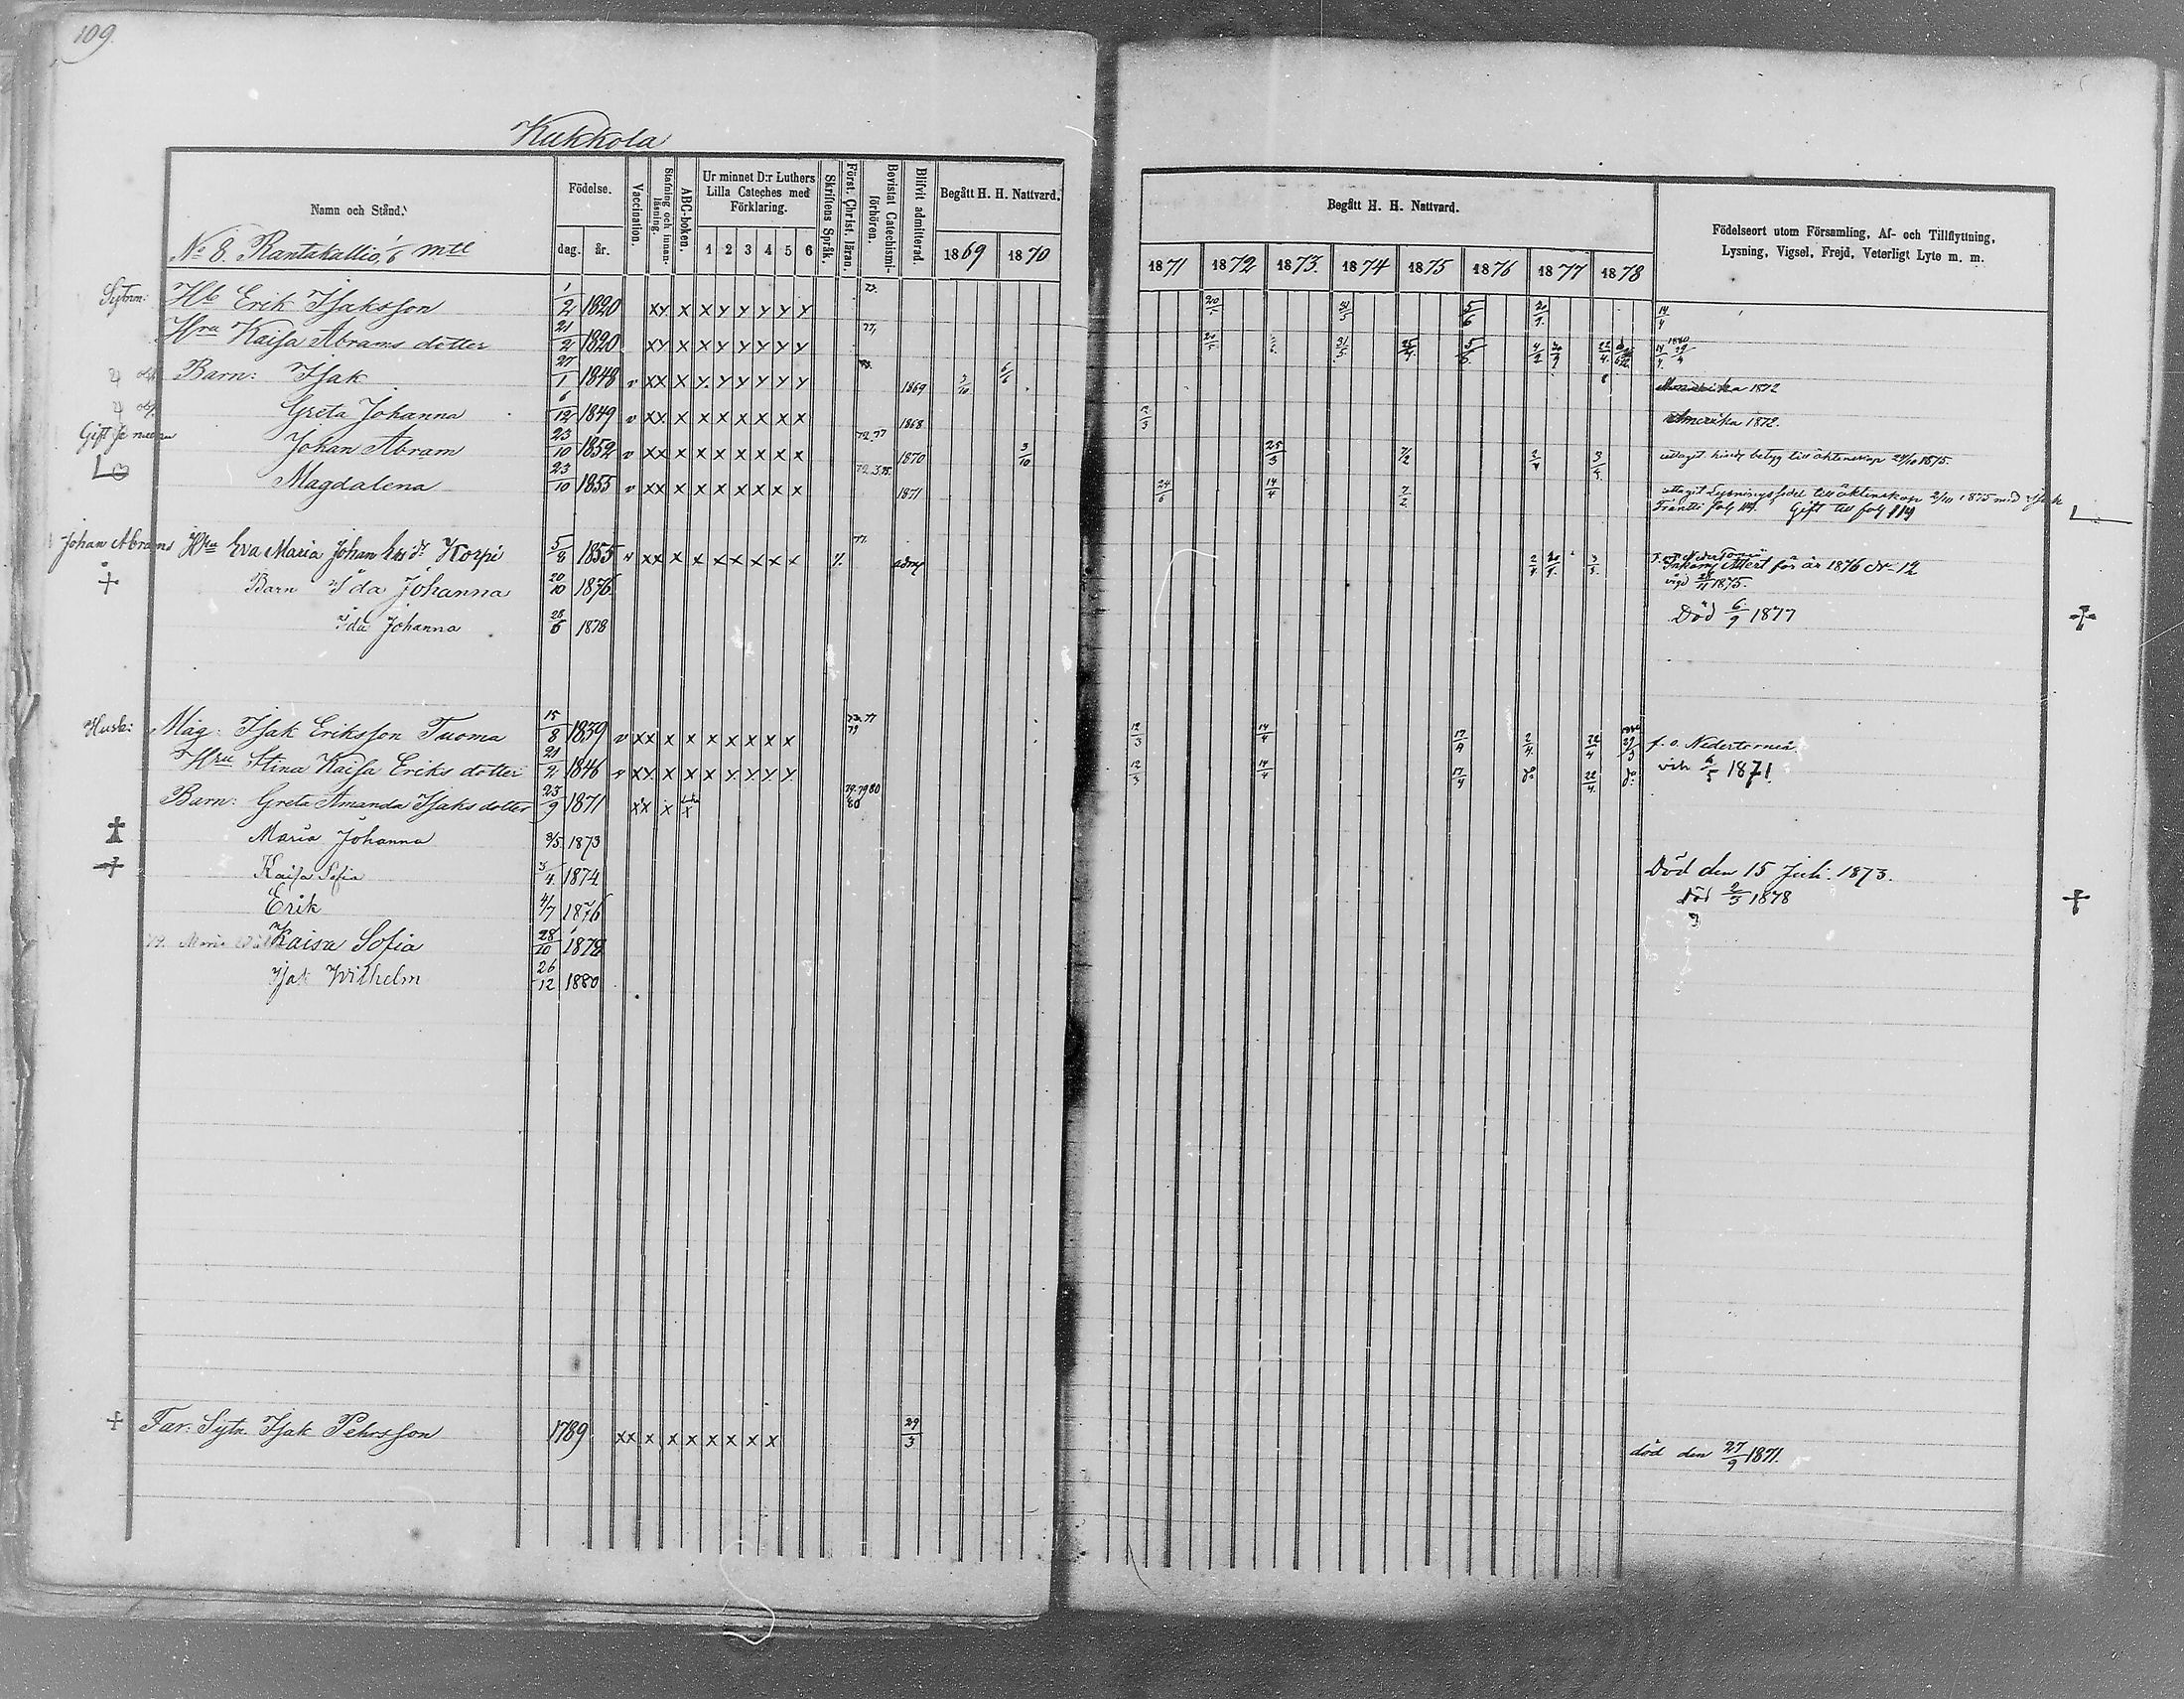 109.
Kukkola
Namn och Stånd.
Födelse.
dag. år.
Vaccination.
Stafning och innanläsning.
ABC-boken.
Ur minnet D:r Luthers Lilla Cateches med Förklaring.
1 2 3 4 5 6
Skriftens Språk.
Först. Christ. läran.
Bevistat Catechismiförhören.
Blifvit admitterad.
Begått H. H. Nattvard.
1869 1870
Begått H. H. Nattvard.
1871 1872 1873. 1874 1875 1876 1877 1878
Födelseort utom Församling, Af- och Tillflyttning,
Lysning, Vigsel, Frejd, Veterligt Lyte m. m.
No 8. Rantakallio, 1/6 mtl
Sytnm: Hb Erik Isaksson 1/2 1820 xy x x y y y y y 73. 5/6 14/4
Hru Kaisa Abrams dotter 21/2 1820 xy x x y y y y y 77, 31/5 22/4 1880
Barn: Isak 27/1 1848 v xx x y y y y y y 1869 3/10 6/6 Amerika 1872
Greta Johanna 6/12 1849 v xx x x x x x x x 1868 12/3 Amerika 1872.
Johan Abram 23/10 1852 v xx x x x x x x x 72.77 1870 3/10 25/3 2/4 uttagit hindr. betyg till äktenskap 24/10 1875.
Magdalena 23/10 1855 v xx x x x x x x x 1871 24/6 14/4 7/2 uttagit Lysningssedel till äktenskap 2/10 1875 med Isak
Fräntti fol 114. Gift till fol 114
Johan Abrams Hru Eva Maria Johan hds dr Korpi 5/8 1855 v xx x x x x x x x 77 adm 2/4 3/5. Inkom Attest för år 1876 No 12
vigd 1875.
+ Barn Ida Johanna 20/10 1876 Död 6/9 1877 +
Ida Johanna 28/6 1878
Måg: Isak Eriksson Tuoma 15/8 1839 v xx x x x x x x x 12/3 14/4 17/4 2/4 22/4 f. o. Nedertorneå
Hru Stina Kaisa Eriks dotter 21/2 1846 v xx x x x y y y y 12/3 14/4 17/4 do 22/4 do 6/5 1871.
Barn: Greta Amanda Isaks dotter 23/9 1871 xx x x 79.79 80 80
+ Maria Johanna 8/5 1873 Död den 15 Juli. 1873.
+ Kaisa Sofia 3/4 1874 död 2/3 1878 +
Erik 4/7 1876
Kaisa Sofia 28/10 1878
Isak Wilhelm 26/12 1880
+ Far: Sytn. Isak Pehrsson 1789 xx x x x x x x x 29/3 död den 27/9 1871.